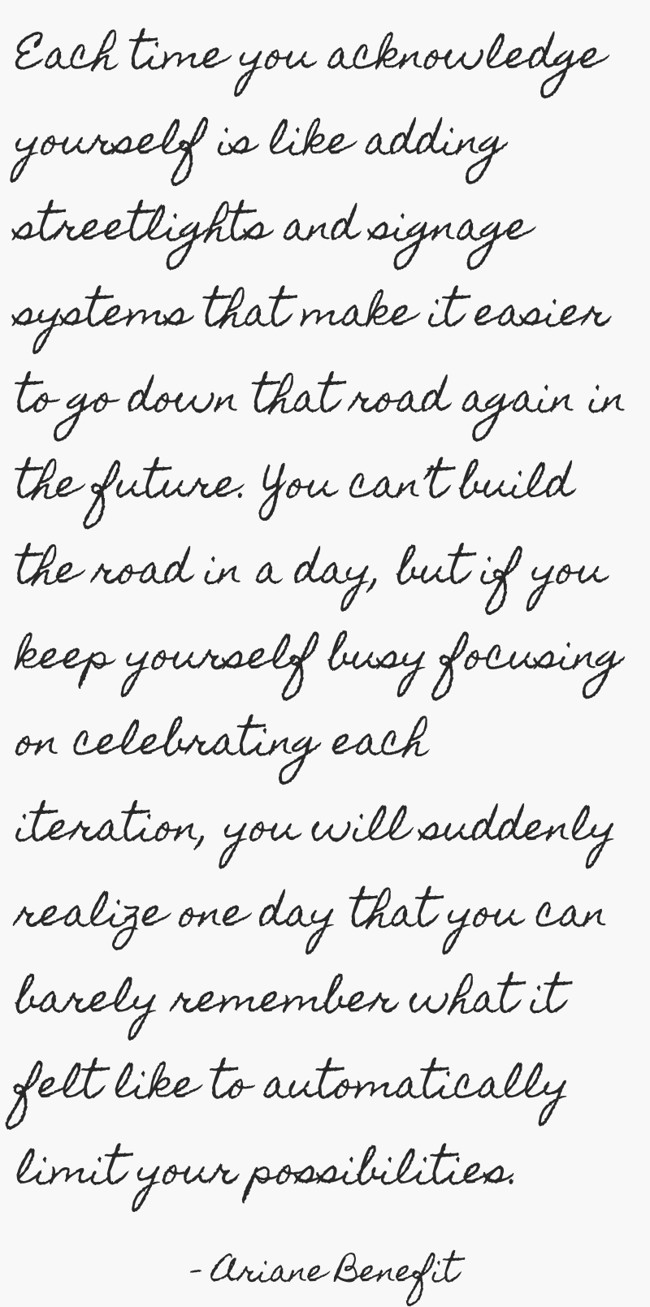 Each time you acknowledge
yourself is like adding
streetlights and signage
systems that make it easier
to go down that road again in
the future. You can't build
the road in a day, but if you
keep yourself busy focusing
on celebrating each
iteration, you will suddenly
realize one day that you can
barely remember what it
felt like to automatically
limit your possibilities.
- Ariane Benefit